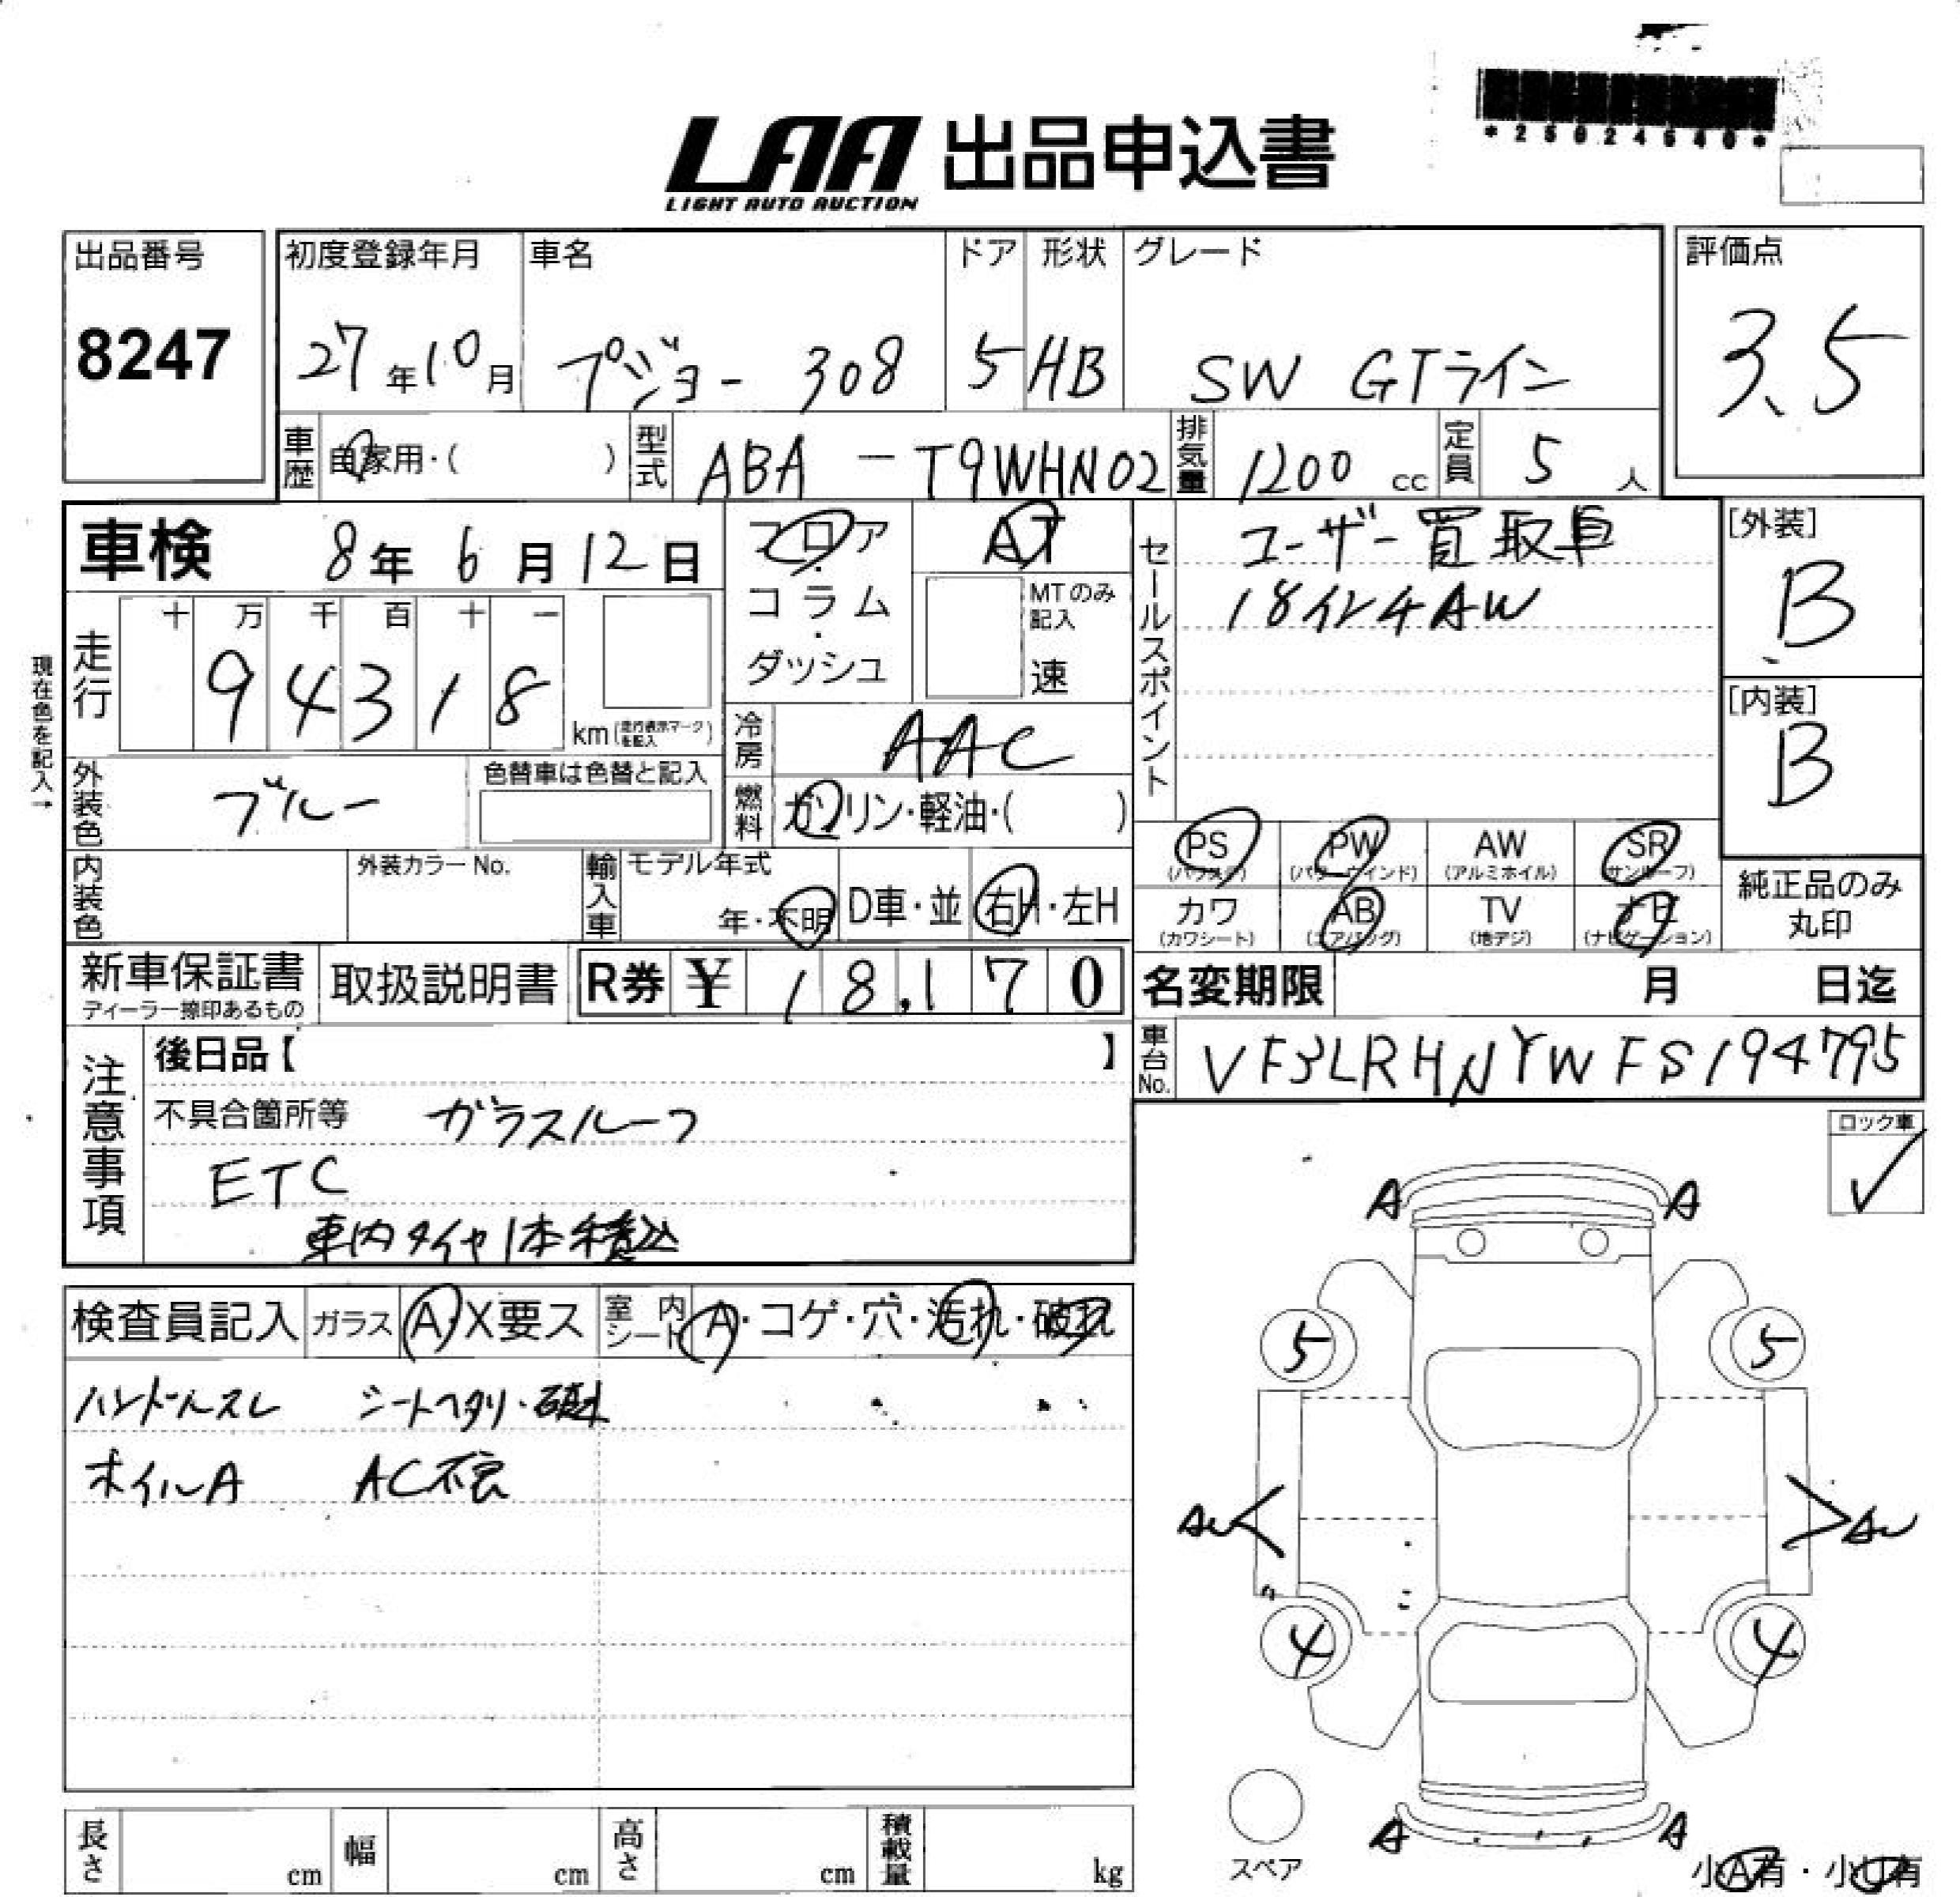 *25024640*
LAA 出品申込書
LIGHT AUTO AUCTION
出品番号 初度登録年月 車名 ドア 形状 グレード 評価点
8247 27年10月 プジョー 308 5 HB SW GTライン 3.5
車歴 自家用・( ) 型式 ABA-T9WHN02 排気量 1200 cc 定員 5 人
車検 8年 6月 12日 フロア AT セールスポイント ユーザー買取車 [外装]
コラム・ダッシュ MTのみ記入 速 18インチAW B
現在色を記入→
走行 十 万 千 百 十 一
9 4 3 1 8 km(走行表示マークを記入)
冷房 AAC [内装] B
外装色 ブルー 色替車は色替と記入 燃料 ガソリン・軽油・( )
PS(パワステ) PW(パワーウィンド) AW(アルミホイル) SR(サンルーフ)
内装色 外装カラーNo. 輸入車 モデル年式 年・不明 D車・並 右H・左H
カワ(カワシート) AB(エアバッグ) TV(地デジ) ナビ(ナビゲーション) 純正品のみ丸印
新車保証書 ディーラー捺印あるもの 取扱説明書 R券 ¥ 18,170 名変期限 月 日迄
注意事項 後日品【 】 車台No. VF3LRHNYWFS194795
不具合箇所等 ガラスルーフ ロック車 ✓
ETC
車内タイヤ1本積込
検査員記入 ガラス A・X要ス 室内シート A・コゲ・穴・汚れ・破れ
ハンドルスレ シートヘタリ・破れ
ホイルA AC不良
A A
5 5
AU AU
4 4
スペア
A A
小A有・小U有
長さ cm 幅 cm 高さ cm 積載量 kg